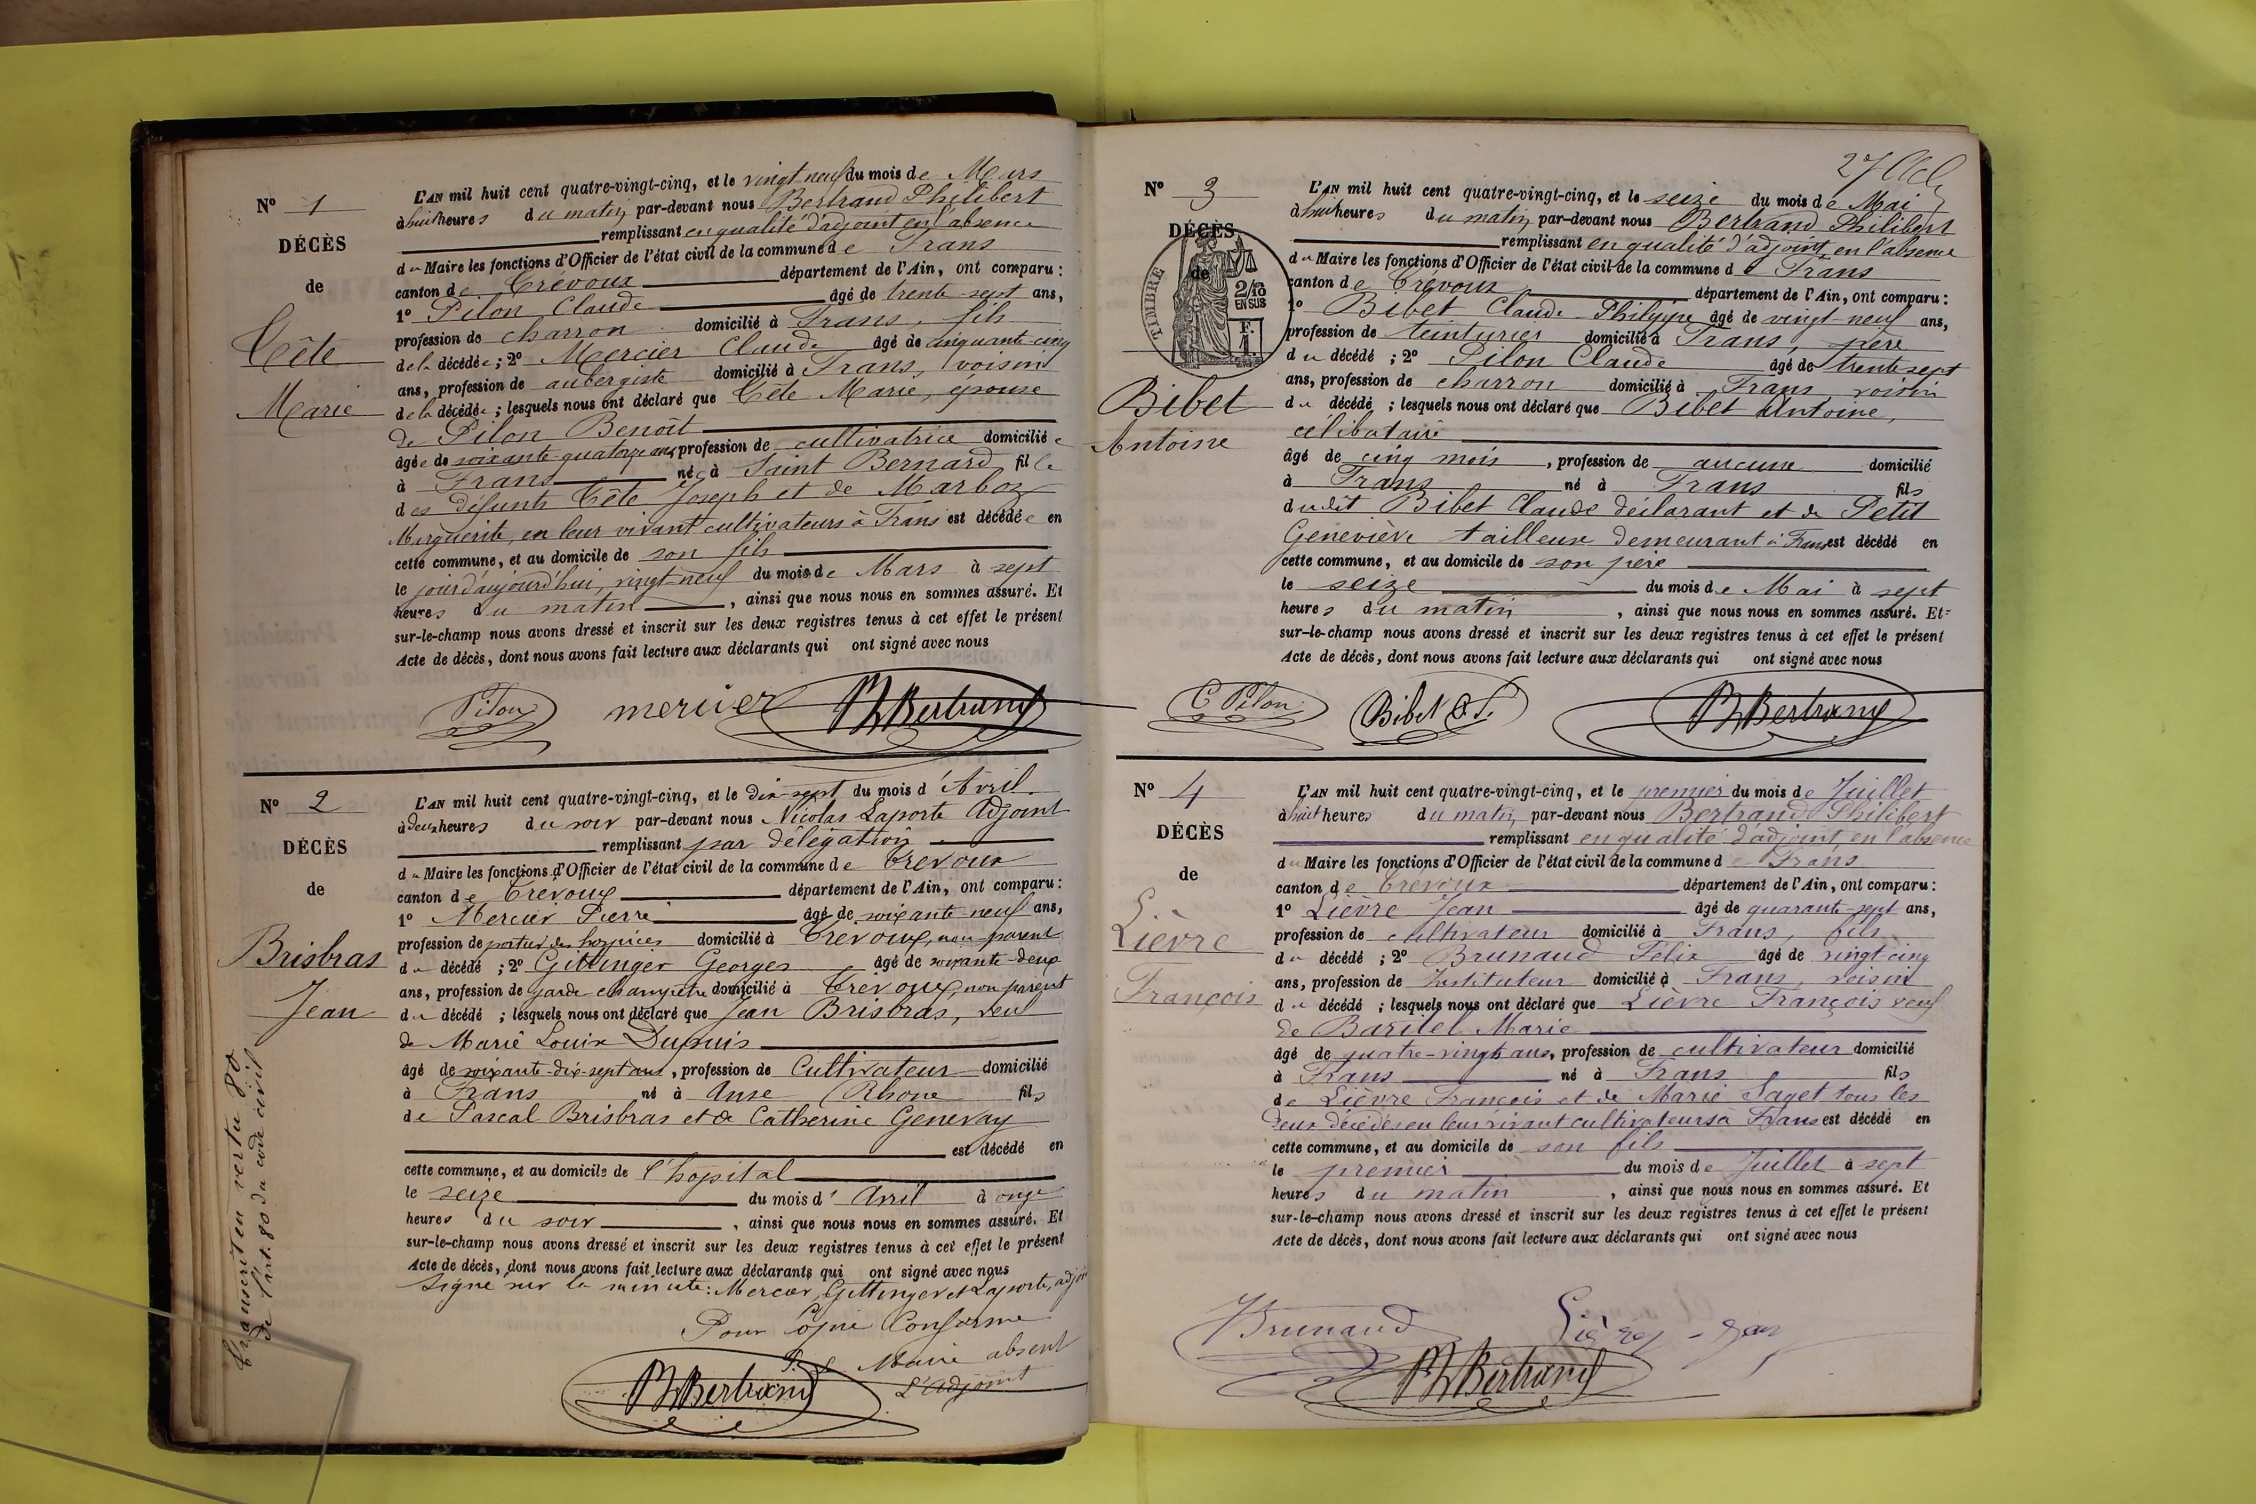 N° 1
DÉCÈS
de
Tête
Marie
L'AN mil huit cent quatre-vingt-cinq, et le vingt neuf du mois de Mars
à huit heures du matin, par-devant nous Bertrand Philibert
remplissant en qualité d'adjoint en l'absence
du Maire les fonctions d'Officier de l'état civil de la commune de Frans
canton de Trévoux département de l'Ain, ont comparu :
1° Pilon Claude âgé de trente-sept ans,
profession de charron domicilié à Frans, fils
de la décédée ; 2° Mercier Claude âgé de cinquante-cinq
ans, profession de aubergiste domicilié à Frans, voisin
de la décédée ; lesquels nous ont déclaré que Tête Marie, épouse
de Pilon Benoît
âgée de soixante quatorze ans, profession de cultivatrice domiciliée
à Frans née à Saint Bernard fille
des défunts Tête Joseph et de Marboz
Marguerite, en leur vivant cultivateurs à Frans est décédée en
cette commune, et au domicile de son fils
le jour d'aujourd'hui, vingt-neuf du mois de Mars à sept
heures du matin , ainsi que nous nous en sommes assuré. Et
sur-le-champ nous avons dressé et inscrit sur les deux registres tenus à cet effet le présent
Acte de décès, dont nous avons fait lecture aux déclarants qui ont signé avec nous
Pilon mercier Ph Bertrand
N° 2
DÉCÈS
de
Brisbras
Jean
Transcrit en vertu 80
de l'art. 80 du code civil
L'AN mil huit cent quatre-vingt-cinq, et le dix-sept du mois d'Avril
à deux heures du soir par-devant nous Nicolas Laporte Adjoint
remplissant par délégation
du Maire les fonctions d'Officier de l'état civil de la commune de Trévoux
canton de Trevoux département de l'Ain, ont comparu :
1° Mercier Pierre âgé de soixante-neuf ans,
profession de portier des hospices domicilié à Trevoux, non parent
du décédé ; 2° Gittinger Georges âgé de soixante-deux
ans, profession de garde champêtre domicilié à Trevoux, non parent
du décédé ; lesquels nous ont déclaré que Jean Brisbras, veuf
de Marie Louise Dupuis
âgé de soixante-dix-sept ans, profession de Cultivateur domicilié
à Frans né à Anse (Rhone fils
de Pascal Brisbras et de Catherine Genevay
est décédé en
cette commune, et au domicile de l'hopital
le seize du mois d'Avril à onze
heures du soir , ainsi que nous nous en sommes assuré. Et
sur-le-champ nous avons dressé et inscrit sur les deux registres tenus à cet effet le présent
Acte de décès, dont nous avons fait lecture aux déclarants qui ont signé avec nous
Signé sur la minute : Mercier, Gittinger et Laporte, adjoint
Pour Copie Conforme
Maire absent
L'Adjoint
Ph Bertrand
N° 3
DÉCÈS
de
TIMBRE
2/10
EN SUS
F.
1
Bibet
Antoine
L'AN mil huit cent quatre-vingt-cinq, et le seize du mois de Mai
à huit heures du matin, par-devant nous Bertrand Philibert
remplissant en qualité d'adjoint en l'absence
du Maire les fonctions d'Officier de l'état civil de la commune de Frans
canton de Trévoux département de l'Ain, ont comparu :
1° Bibet Claude-Philippe âgé de vingt-neuf ans,
profession de teinturier domicilié à Frans, père
du décédé ; 2° Pilon Claude âgé de trente sept
ans, profession de charron domicilié à Frans voisin
du décédé ; lesquels nous ont déclaré que Bibet Antoine,
célibataire
âgé de cinq mois , profession de aucune domicilié
à Frans né à Frans fils
dudit Bibet Claude déclarant et de Petit
Geneviève tailleuse demeurant à Frans est décédé en
cette commune, et au domicile de son père
le seize du mois de Mai à sept
heures du matin , ainsi que nous nous en sommes assuré. Et
sur-le-champ nous avons dressé et inscrit sur les deux registres tenus à cet effet le présent
Acte de décès, dont nous avons fait lecture aux déclarants qui ont signé avec nous
C Pilon Bibet Ph Bertrand
N° 4
DÉCÈS
de
Lièvre
François
L'AN mil huit cent quatre-vingt-cinq, et le premier du mois de Juillet
à huit heures du matin, par-devant nous Bertrand Philibert
remplissant en qualité d'adjoint en l'absence
du Maire les fonctions d'Officier de l'état civil de la commune de Frans
canton de Trévoux département de l'Ain, ont comparu :
1° Lièvre Jean âgé de quarante-sept ans,
profession de cultivateur domicilié à Frans, fils
du décédé ; 2° Brunaud Félix âgé de vingt cinq
ans, profession de Instituteur domicilié à Frans, voisin
du décédé ; lesquels nous ont déclaré que Lièvre François veuf
de Baritel Marie
âgé de quatre-vingts ans, profession de cultivateur domicilié
à Frans né à Frans fils
de Lièvre François et de Marie Saget tous les
deux décédés en leur vivant cultivateurs à Frans est décédé en
cette commune, et au domicile de son fils
le premier du mois de Juillet à sept
heures du matin , ainsi que nous nous en sommes assuré. Et
sur-le-champ nous avons dressé et inscrit sur les deux registres tenus à cet effet le présent
Acte de décès, dont nous avons fait lecture aux déclarants qui ont signé avec nous
Brunaud
Ph Bertrand